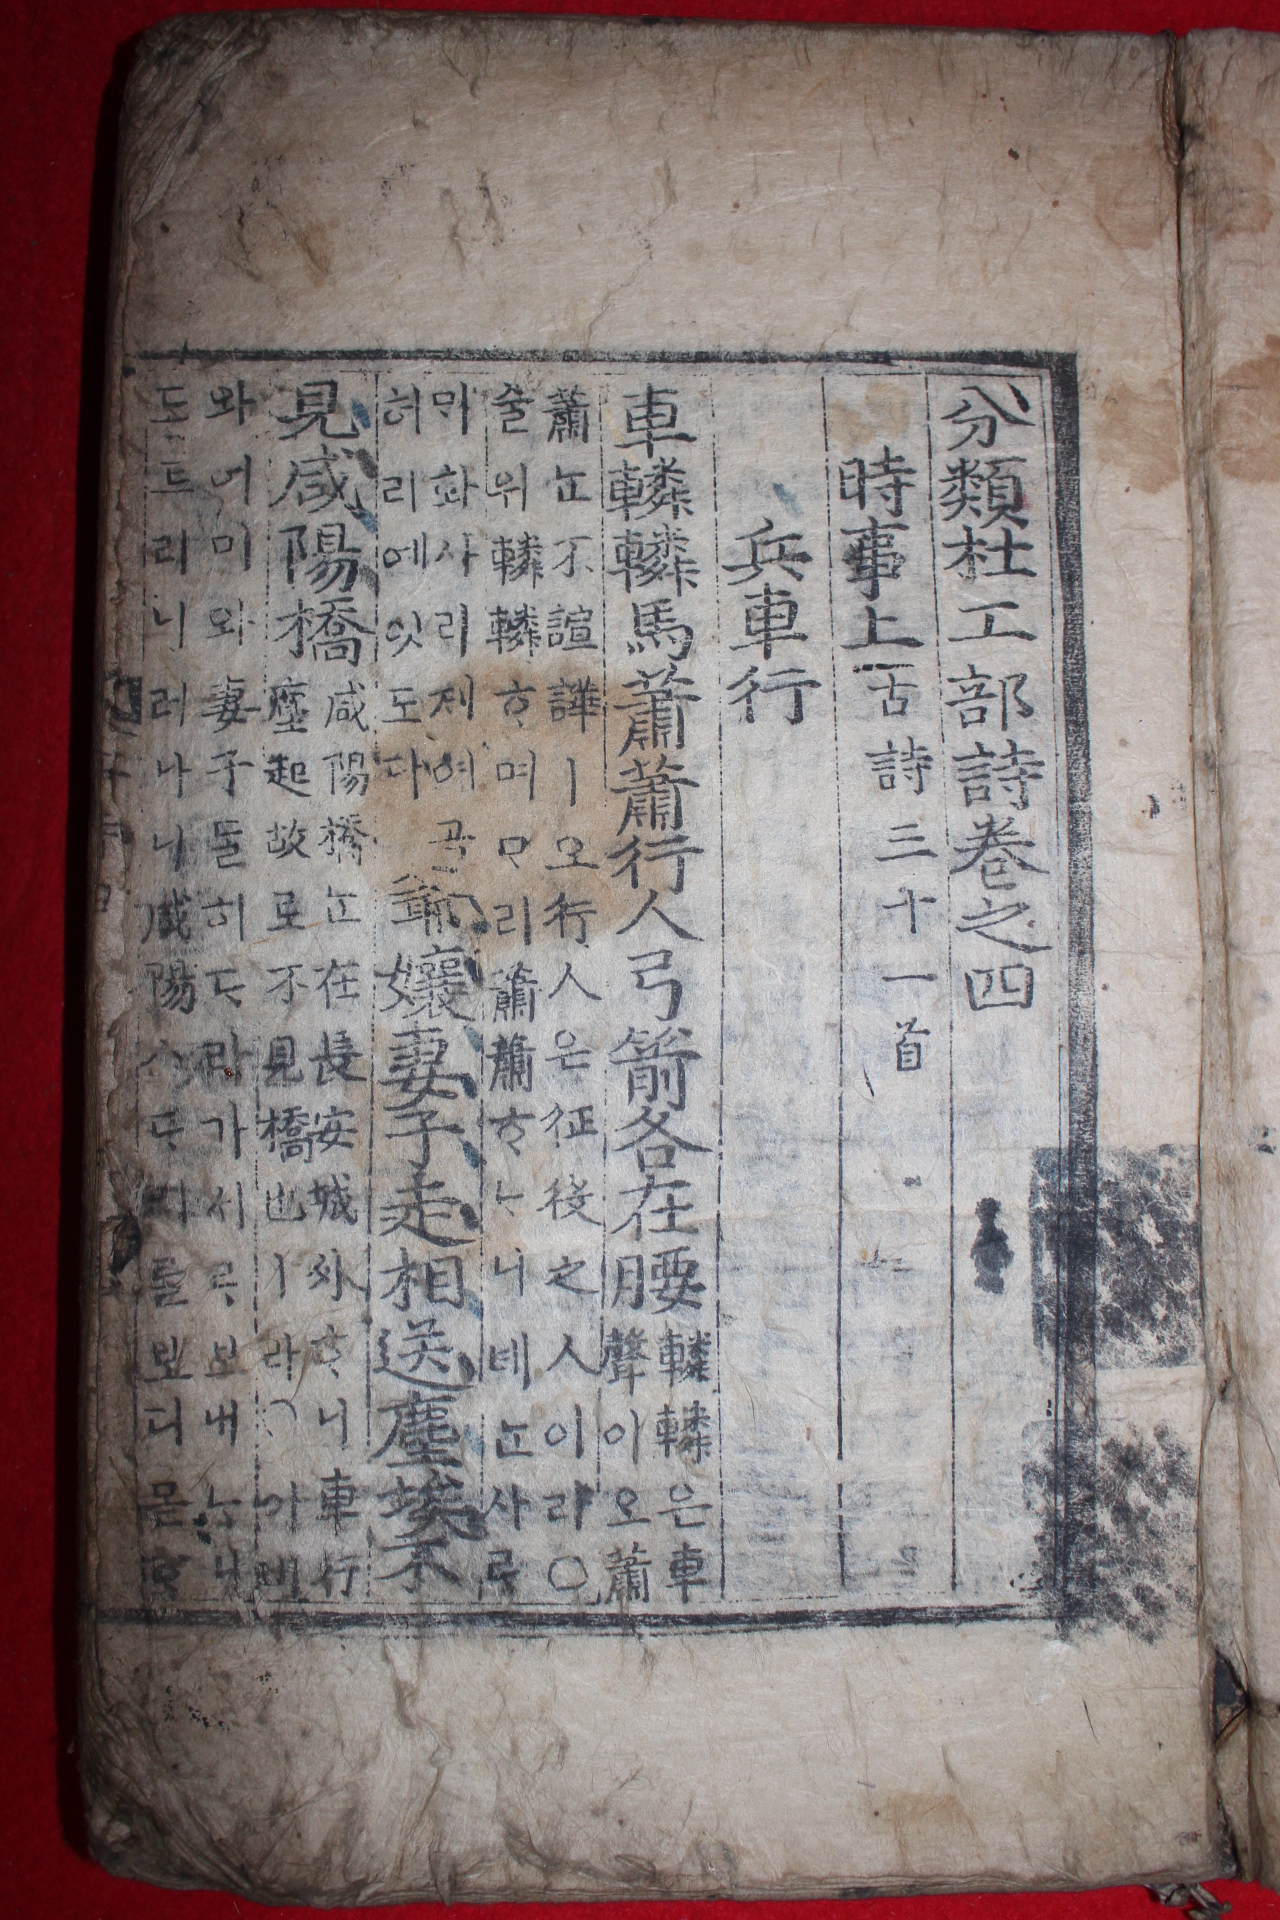 分類杜工部詩卷之四
時事上 古詩三十一首
兵車行
車轔轔馬蕭蕭行人弓箭各在腰 轔轔은車
聲이오蕭
蕭ᄂᆞᆫ不諠譁ㅣ오行人은征役之人이라○
술위轔轔ᄒᆞ며ᄆᆞ리蕭蕭ᄒᆞᄂᆞ니녜ᄂᆞᆫ사ᄅᆞ
ᄆᆡ화사리제여곰
허리예잇도다
爺孃妻子走相送塵埃不
見咸陽橋 咸陽橋ᄂᆞᆫ在長安城外ᄒᆞ니車行
塵起故로不見橋也ㅣ라○아비
와어미와妻子돌히ᄃᆞ라가서르보내ᄂᆞ니
도드리니러나니咸陽ㅅᄃᆞ리를보디몯ᄒᆞ